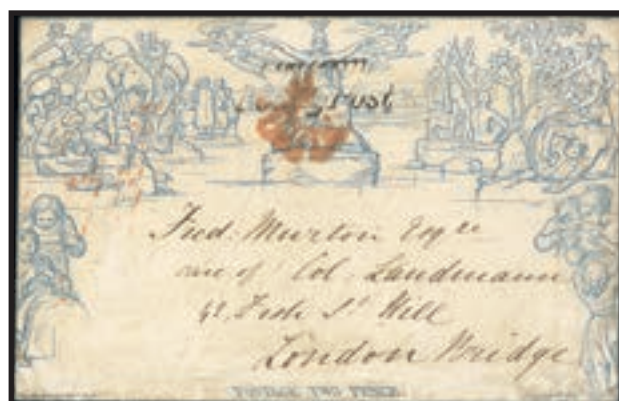 Penny Post
Fred. Murton Esqre
care of Col. Landmann
Fish St Hill
London Bridge
POSTAGE TWO PENCE